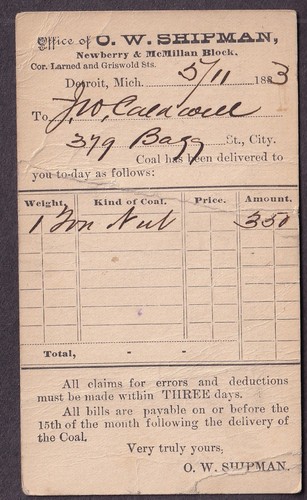 Office of O. W. SHIPMAN,
Newberry & McMillan Block,
Cor. Larned and Griswold Sts.
Detroit, Mich. 5/11 1883
To J. W. Caldwell
379 Bagg St., City.
Coal has been delivered to
you to-day as follows:
Weight. Kind of Coal. Price. Amount.
1 Ton Nut 350
Total, - -
All claims for errors and deductions
must be made within THREE days.
All bills are payable on or before the
15th of the month following the delivery of
the Coal.
Very truly yours,
O. W. SHIPMAN.